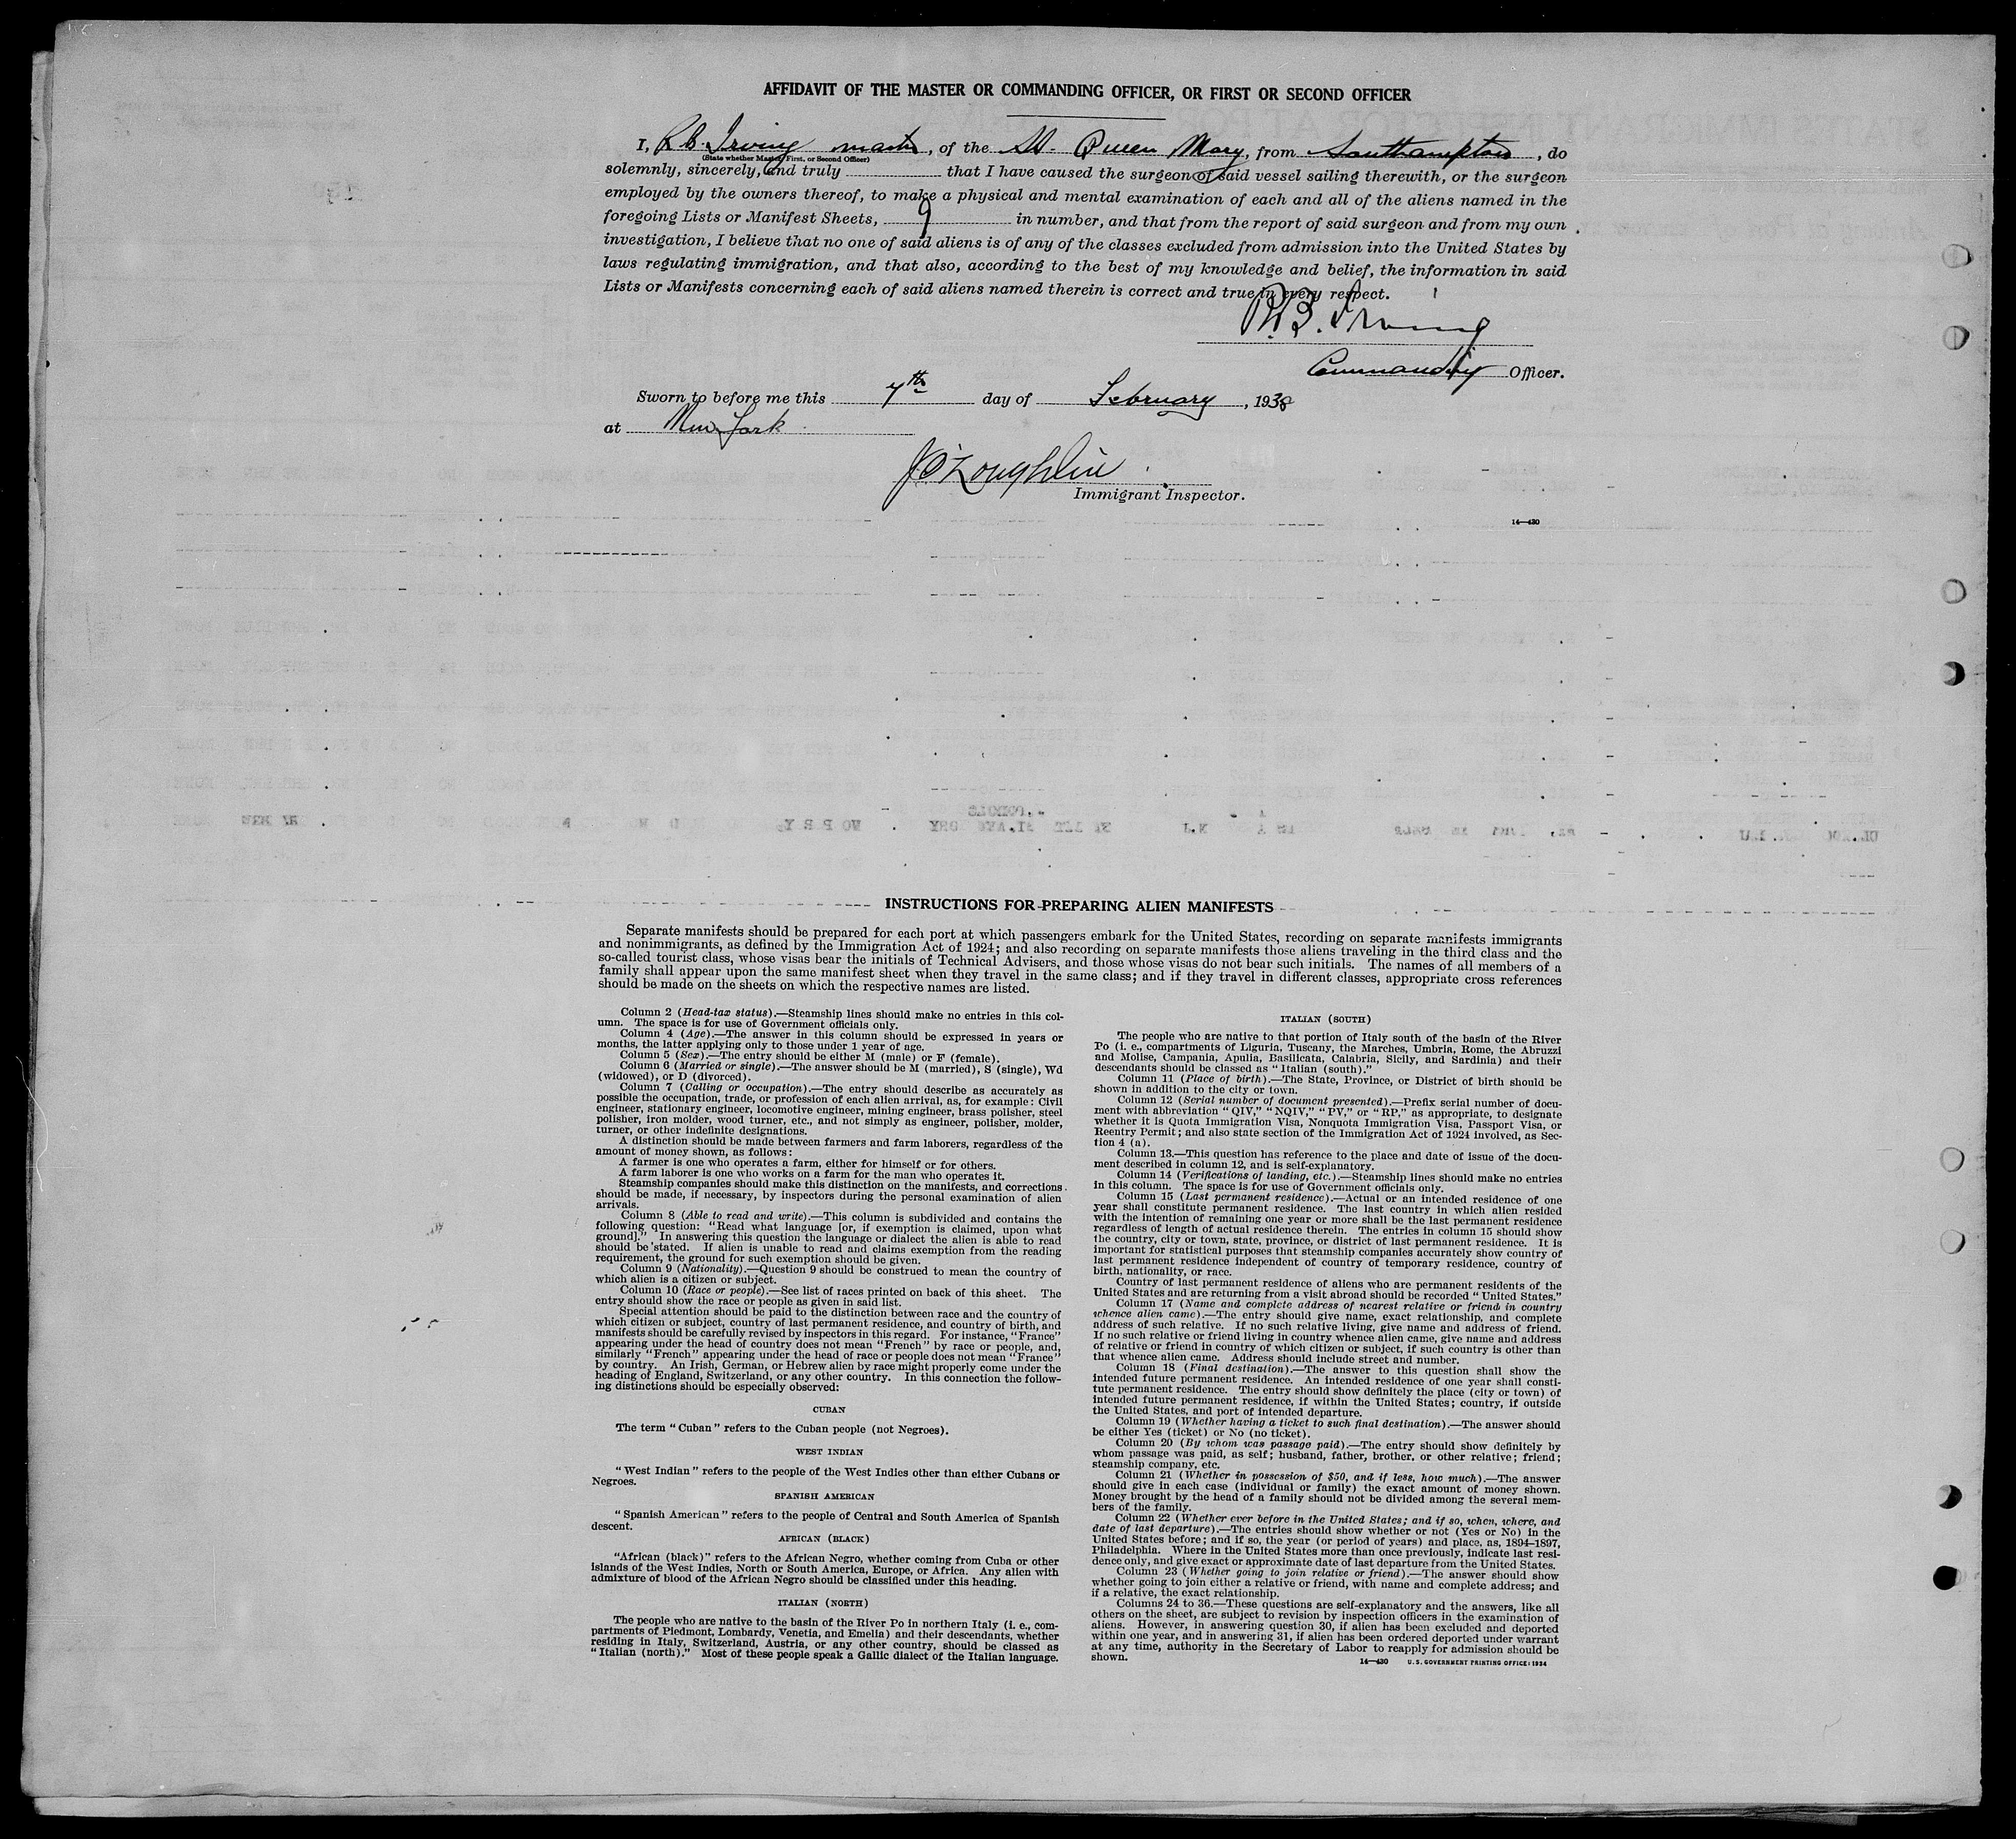 AFFIDAVIT OF THE MASTER OR COMMANDING OFFICER, OR FIRST OR SECOND OFFICER
I, R.B. Irving master, of the SS. Queen Mary, from Southampton, do
(State whether Master, First, or Second Officer)
solemnly, sincerely, and truly that I have caused the surgeon of said vessel sailing therewith, or the surgeon
employed by the owners thereof, to make a physical and mental examination of each and all of the aliens named in the
foregoing Lists or Manifest Sheets, 9 in number, and that from the report of said surgeon and from my own
investigation, I believe that no one of said aliens is of any of the classes excluded from admission into the United States by
laws regulating immigration, and that also, according to the best of my knowledge and belief, the information in said
Lists or Manifests concerning each of said aliens named therein is correct and true in every respect.
R.B. Irving
Commanding Officer.
Sworn to before me this 7th day of February, 1938
at New York
J O'Loughlin
Immigrant Inspector.
14—430
INSTRUCTIONS FOR PREPARING ALIEN MANIFESTS
Separate manifests should be prepared for each port at which passengers embark for the United States, recording on separate manifests immigrants
and nonimmigrants, as defined by the Immigration Act of 1924; and also recording on separate manifests those aliens traveling in the third class and the
so-called tourist class, whose visas bear the initials of Technical Advisers, and those whose visas do not bear such initials. The names of all members of a
family shall appear upon the same manifest sheet when they travel in the same class; and if they travel in different classes, appropriate cross references
should be made on the sheets on which the respective names are listed.
Column 2 (Head-tax status).—Steamship lines should make no entries in this col-
umn. The space is for use of Government officials only.
Column 4 (Age).—The answer in this column should be expressed in years or
months, the latter applying only to those under 1 year of age.
Column 5 (Sex).—The entry should be either M (male) or F (female).
Column 6 (Married or single).—The answer should be M (married), S (single), Wd
(widowed), or D (divorced).
Column 7 (Calling or occupation).—The entry should describe as accurately as
possible the occupation, trade, or profession of each alien arrival, as, for example: Civil
engineer, stationary engineer, locomotive engineer, mining engineer, brass polisher, steel
polisher, iron molder, wood turner, etc., and not simply as engineer, polisher, molder,
turner, or other indefinite designations.
A distinction should be made between farmers and farm laborers, regardless of the
amount of money shown, as follows:
A farmer is one who operates a farm, either for himself or for others.
A farm laborer is one who works on a farm for the man who operates it.
Steamship companies should make this distinction on the manifests, and corrections
should be made, if necessary, by inspectors during the personal examination of alien
arrivals.
Column 8 (Able to read and write).—This column is subdivided and contains the
following question: "Read what language [or, if exemption is claimed, upon what
ground]." In answering this question the language or dialect the alien is able to read
should be stated. If alien is unable to read and claims exemption from the reading
requirement, the ground for such exemption should be given.
Column 9 (Nationality).—Question 9 should be construed to mean the country of
which alien is a citizen or subject.
Column 10 (Race or people).—See list of races printed on back of this sheet. The
entry should show the race or people as given in said list.
Special attention should be paid to the distinction between race and the country of
which citizen or subject, country of last permanent residence, and country of birth, and
manifests should be carefully revised by inspectors in this regard. For instance, "France"
appearing under the head of country does not mean "French" by race or people, and,
similarly "French" appearing under the head of race or people does not mean "France"
by country. An Irish, German, or Hebrew alien by race might properly come under the
heading of England, Switzerland, or any other country. In this connection the follow-
ing distinctions should be especially observed:
CUBAN
The term "Cuban" refers to the Cuban people (not Negroes).
WEST INDIAN
"West Indian" refers to the people of the West Indies other than either Cubans or
Negroes.
SPANISH AMERICAN
"Spanish American" refers to the people of Central and South America of Spanish
descent.
AFRICAN (BLACK)
"African (black)" refers to the African Negro, whether coming from Cuba or other
islands of the West Indies, North or South America, Europe, or Africa. Any alien with
admixture of blood of the African Negro should be classified under this heading.
ITALIAN (NORTH)
The people who are native to the basin of the River Po in northern Italy (i. e., com-
partments of Piedmont, Lombardy, Venetia, and Emelia) and their descendants, whether
residing in Italy, Switzerland, Austria, or any other country, should be classed as
"Italian (north)." Most of these people speak a Gallic dialect of the Italian language.
ITALIAN (SOUTH)
The people who are native to that portion of Italy south of the basin of the River
Po (i. e., compartments of Liguria, Tuscany, the Marches, Umbria, Rome, the Abruzzi
and Molise, Campania, Apulia, Basilicata, Calabria, Sicily, and Sardinia) and their
descendants should be classed as "Italian (south)."
Column 11 (Place of birth).—The State, Province, or District of birth should be
shown in addition to the city or town.
Column 12 (Serial number of document presented).—Prefix serial number of docu-
ment with abbreviation "QIV," "NQIV," "PV," or "RP," as appropriate, to designate
whether it is Quota Immigration Visa, Nonquota Immigration Visa, Passport Visa, or
Reentry Permit; and also state section of the Immigration Act of 1924 involved, as Sec-
tion 4 (a).
Column 13.—This question has reference to the place and date of issue of the docu-
ment described in column 12, and is self-explanatory.
Column 14 (Verifications of landing, etc.).—Steamship lines should make no entries
in this column. The space is for use of Government officials only.
Column 15 (Last permanent residence).—Actual or an intended residence of one
year shall constitute permanent residence. The last country in which alien resided
with the intention of remaining one year or more shall be the last permanent residence
regardless of length of actual residence therein. The entries in column 15 should show
the country, city or town, state, province, or district of last permanent residence. It is
important for statistical purposes that steamship companies accurately show country of
last permanent residence independent of country of temporary residence, country of
birth, nationality, or race.
Country of last permanent residence of aliens who are permanent residents of the
United States and are returning from a visit abroad should be recorded "United States."
Column 17 (Name and complete address of nearest relative or friend in country
whence alien came).—The entry should give name, exact relationship, and complete
address of such relative. If no such relative living, give name and address of friend.
If no such relative or friend living in country whence alien came, give name and address
of relative or friend in country of which citizen or subject, if such country is other than
that whence alien came. Address should include street and number.
Column 18 (Final destination).—The answer to this question shall show the
intended future permanent residence. An intended residence of one year shall consti-
tute permanent residence. The entry should show definitely the place (city or town) of
intended future permanent residence, if within the United States; country, if outside
the United States, and port of intended departure.
Column 19 (Whether having a ticket to such final destination).—The answer should
be either Yes (ticket) or No (no ticket).
Column 20 (By whom was passage paid).—The entry should show definitely by
whom passage was paid, as self; husband, father, brother, or other relative; friend;
steamship company, etc.
Column 21 (Whether in possession of $50, and if less, how much).—The answer
should give in each case (individual or family) the exact amount of money shown.
Money brought by the head of a family should not be divided among the several mem-
bers of the family.
Column 22 (Whether ever before in the United States; and if so, when, where, and
date of last departure).—The entries should show whether or not (Yes or No) in the
United States before; and if so, the year (or period of years) and place, as, 1894–1897,
Philadelphia. Where in the United States more than once previously, indicate last resi-
dence only, and give exact or approximate date of last departure from the United States.
Column 23 (Whether going to join relative or friend).—The answer should show
whether going to join either a relative or friend, with name and complete address; and
if a relative, the exact relationship.
Columns 24 to 36.—These questions are self-explanatory and the answers, like all
others on the sheet, are subject to revision by inspection officers in the examination of
aliens. However, in answering question 30, if alien has been excluded and deported
within one year, and in answering 31, if alien has been ordered deported under warrant
at any time, authority in the Secretary of Labor to reapply for admission should be
shown.
14—430 U. S. GOVERNMENT PRINTING OFFICE: 1934